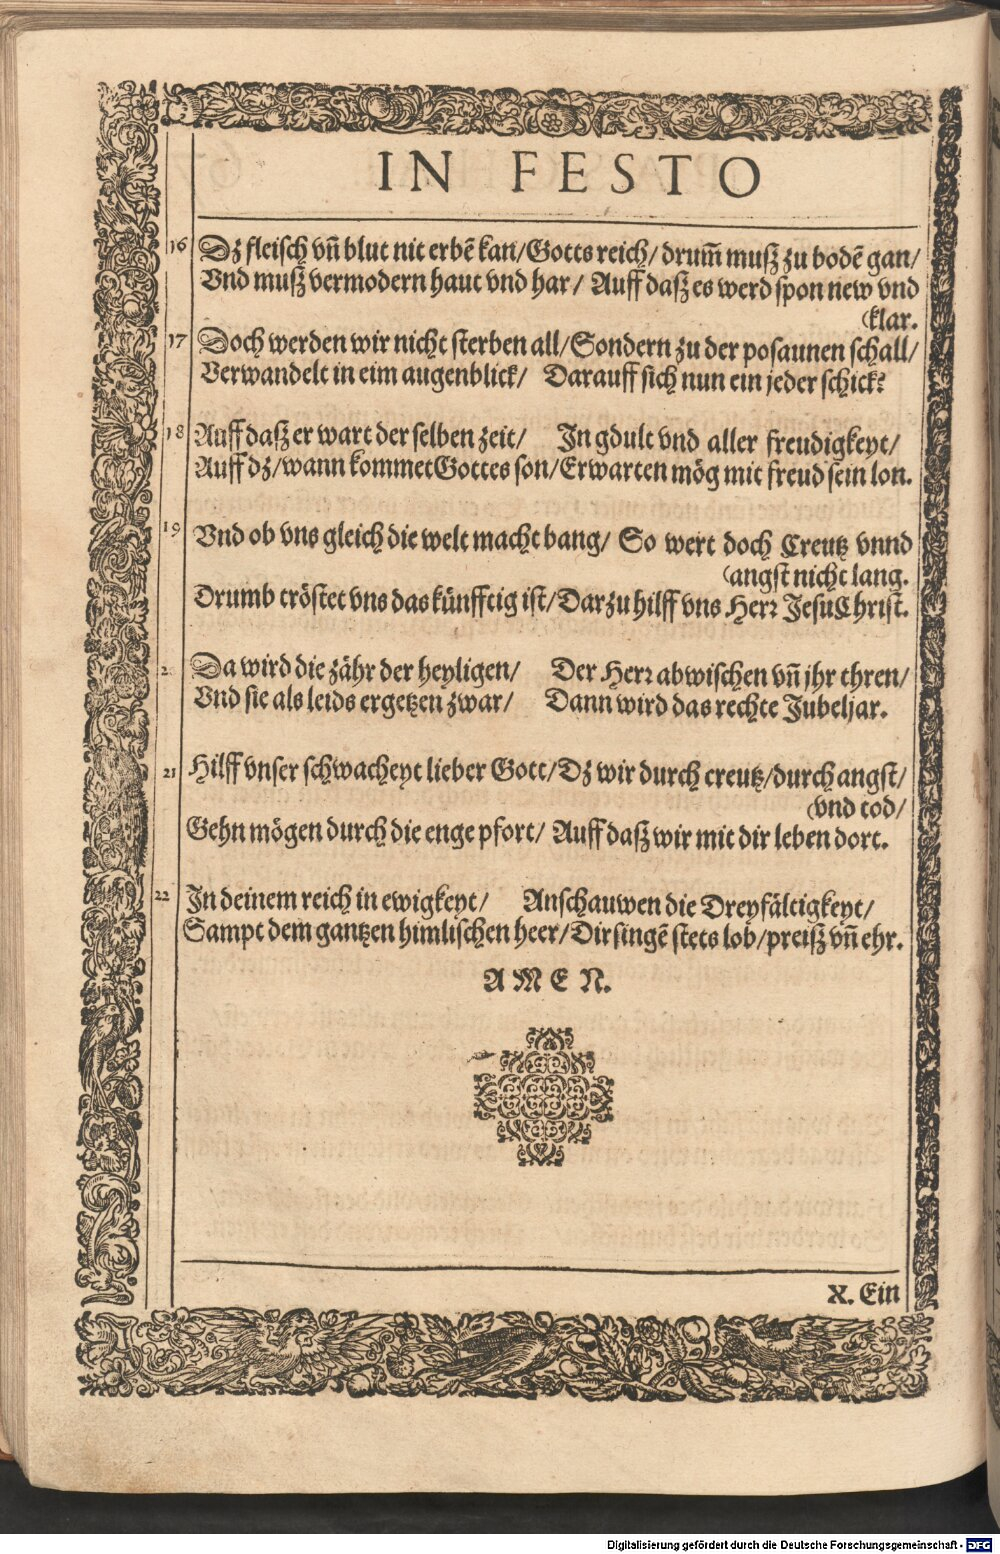 IN FESTO
16 Dz fleisch vñ blut nit erbẽ kan/Gotts reich/ drum̃ muß zu bodẽ gan/
Vnd muß vermodern haut vnd har/ Auff daß es werd spon new vnd
(klar.
17 Doch werden wir nicht sterben all/Sondern zu der posaunen schall/
Verwandelt in eim augenblick/ Darauff sich nun ein jeder schick:
18 Auff daß er wart der selben zeit/ In gdult vnd aller freudigkeyt/
Auff dz/wann kommet Gottes son/Erwarten mög mit freud sein lon.
19 Vnd ob vns gleich die welt macht bang/ So wert doch Creutz vnnd
(angst nicht lang.
Drumb tröstet vns das künfftig ist/Darzu hilff vns Herr Jesu Christ.
2 Da wird die zähr der heyligen/ Der Herr abwischen vñ jhr thren/
Vnd sie als leids ergetzen zwar/ Dann wird das rechte Jubeljar.
21 Hilff vnser schwacheyt lieber Gott/Dz wir durch creutz/durch angst/
(vnd tod/
Gehn mögen durch die enge pfort/ Auff daß wir mit dir leben dort.
22 In deinem reich in ewigkeyt/ Anschauwen die Dreyfältigkeyt/
Sampt dem gantzen himlischen heer/Dir singẽ stets lob/preiß vñ ehr.
AMEN.
X. Ein
Digitalisierung gefördert durch die Deutsche Forschungsgemeinschaft - DFG